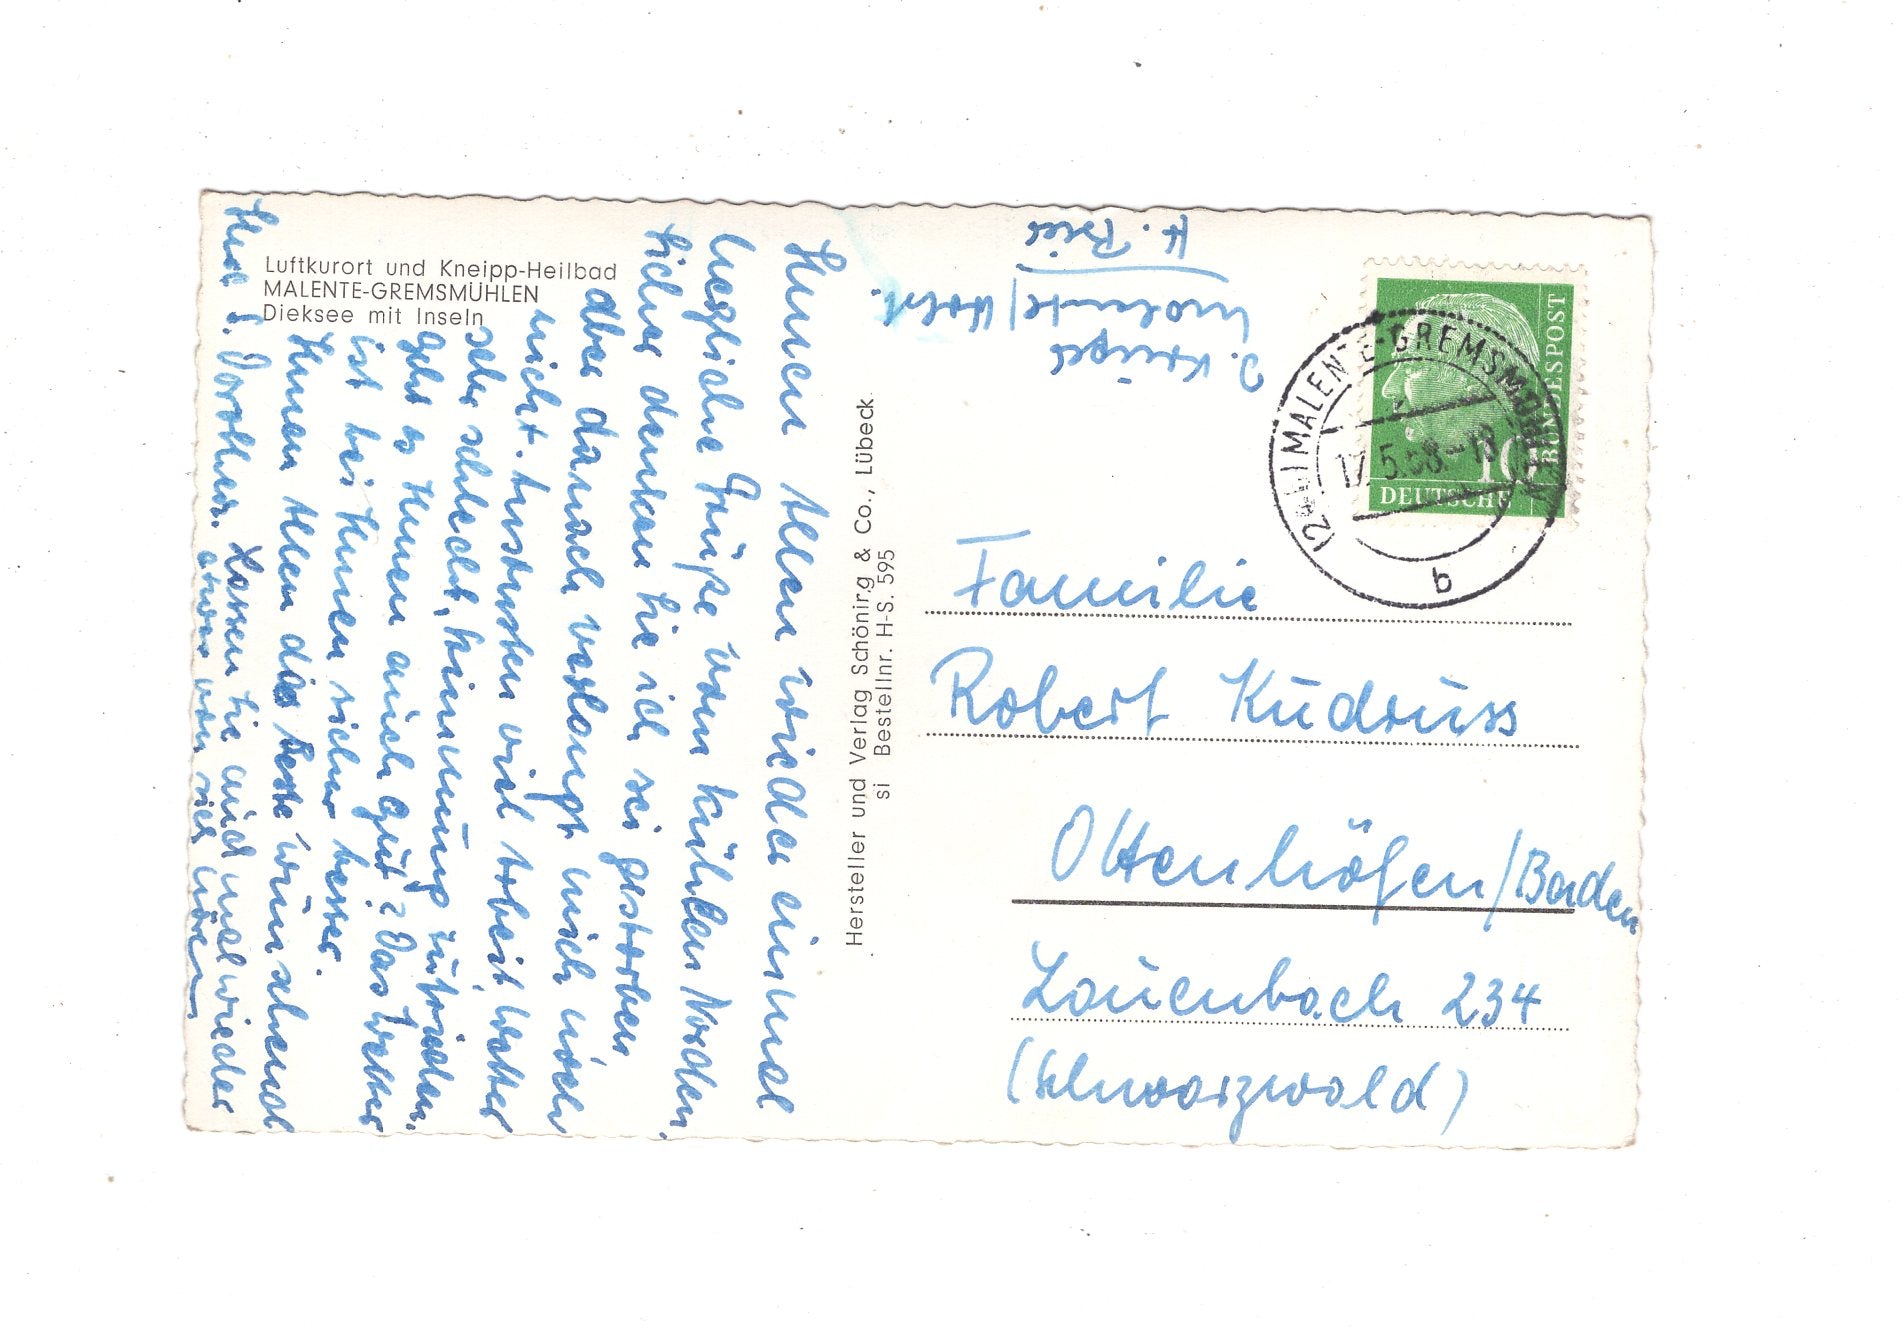 Luftkurort und Kneipp-Heilbad
MALENTE-GREMSMÜHLEN
Dieksee mit Inseln
Ihnen Allen wieder einmal
herzliche Grüße vom kühlen Norden.
Sicher denken Sie ich sei gestorben
aber danach verlangt mich noch
nicht. Ansonsten viel Arbeit, Wetter
sehr schlecht, Stimmung zufrieden.
Geht es Ihnen auch gut? Das Wetter
ist bei Ihnen sicher besser.
Ihnen Allen das Beste wünschend
Ihre S. Dorothea. Lassen Sie auch mal wieder
etwas von sich hören
Hersteller und Verlag Schöning & Co., Lübeck
si Bestellnr. H-S. 595
D. Krüger
Malente/Holst.
DEUTSCHE
BUNDESPOST
10
(24b) MALENTE-GREMSMÜHLEN
17.5.58.-18
b
Familie
Robert Kudruss
Ottenhöfen/Baden
Lauenbach 234
(Schwarzwald)